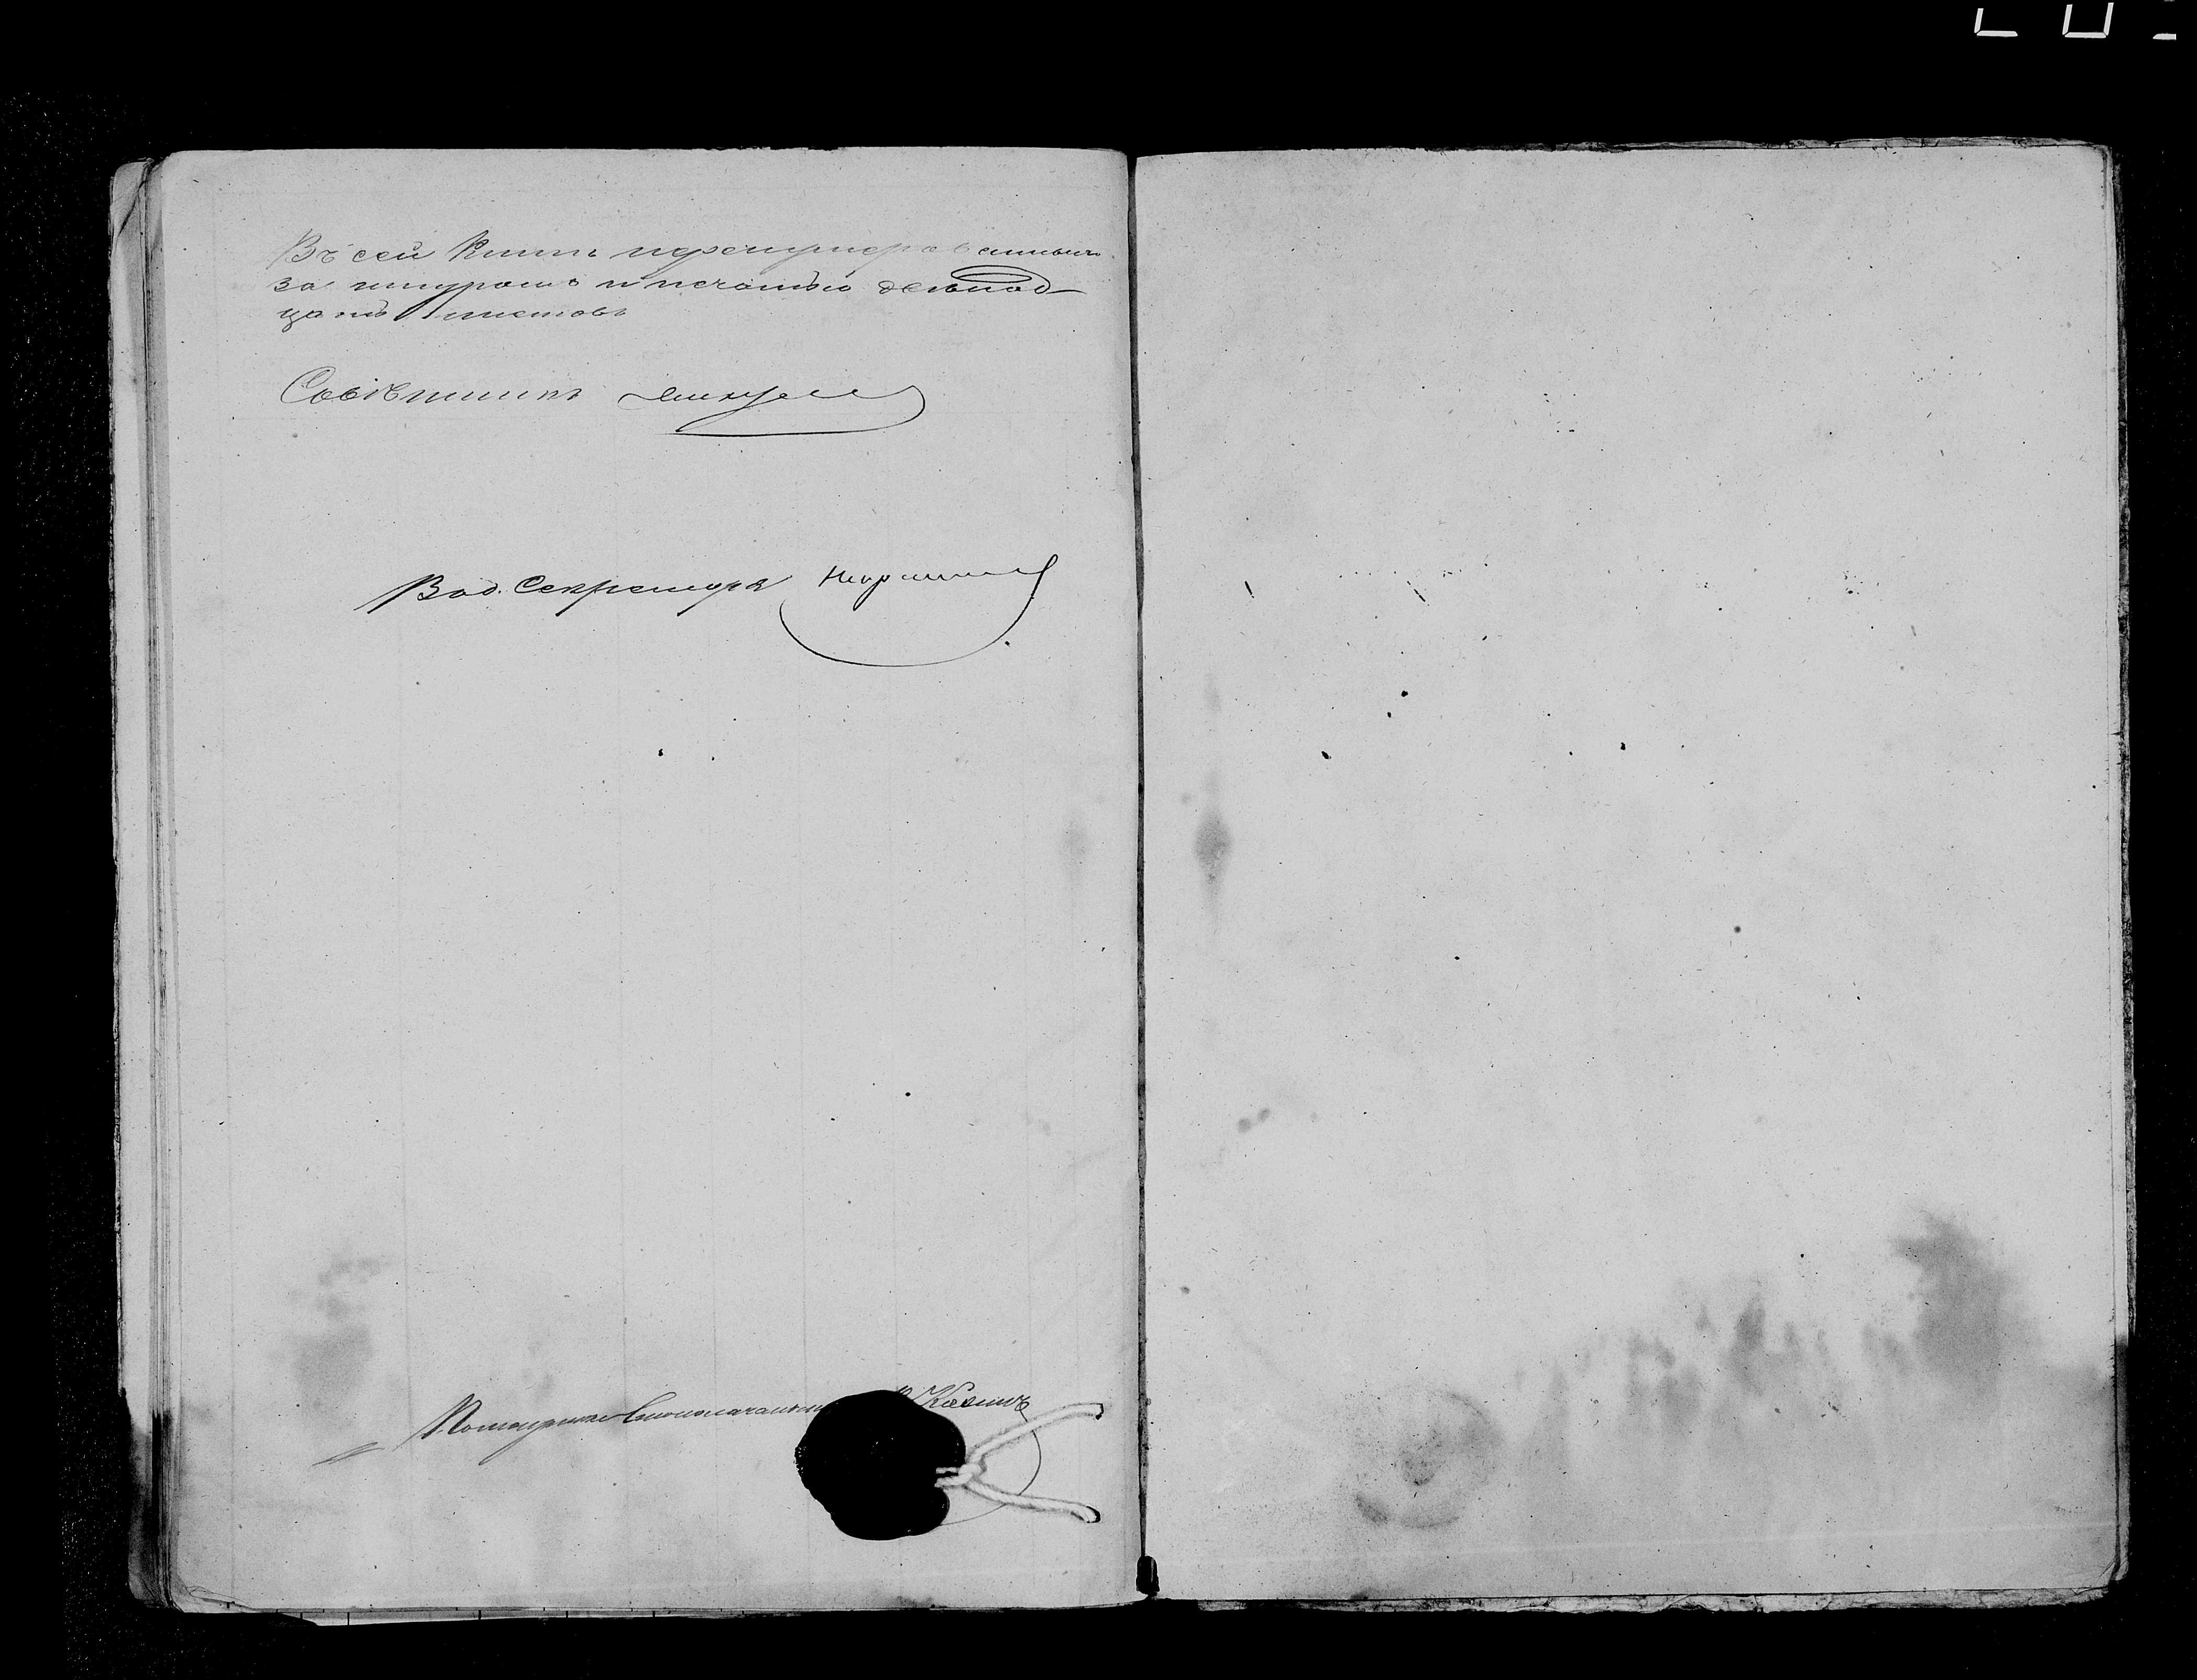 Въ сей Книгѣ перенумерованныхъ
за шнуромъ и печатью девятнад-
цать листовъ
Совѣтникъ
Вод. Секретаря
Помощникъ Столоначальни Казинъ